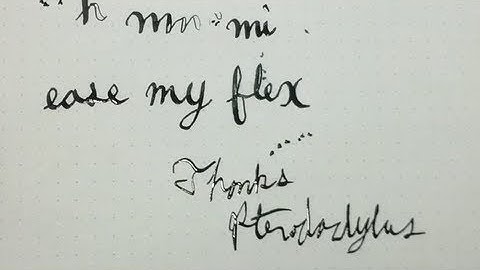 mi
ease my flex
Thanks
Pterodactylus